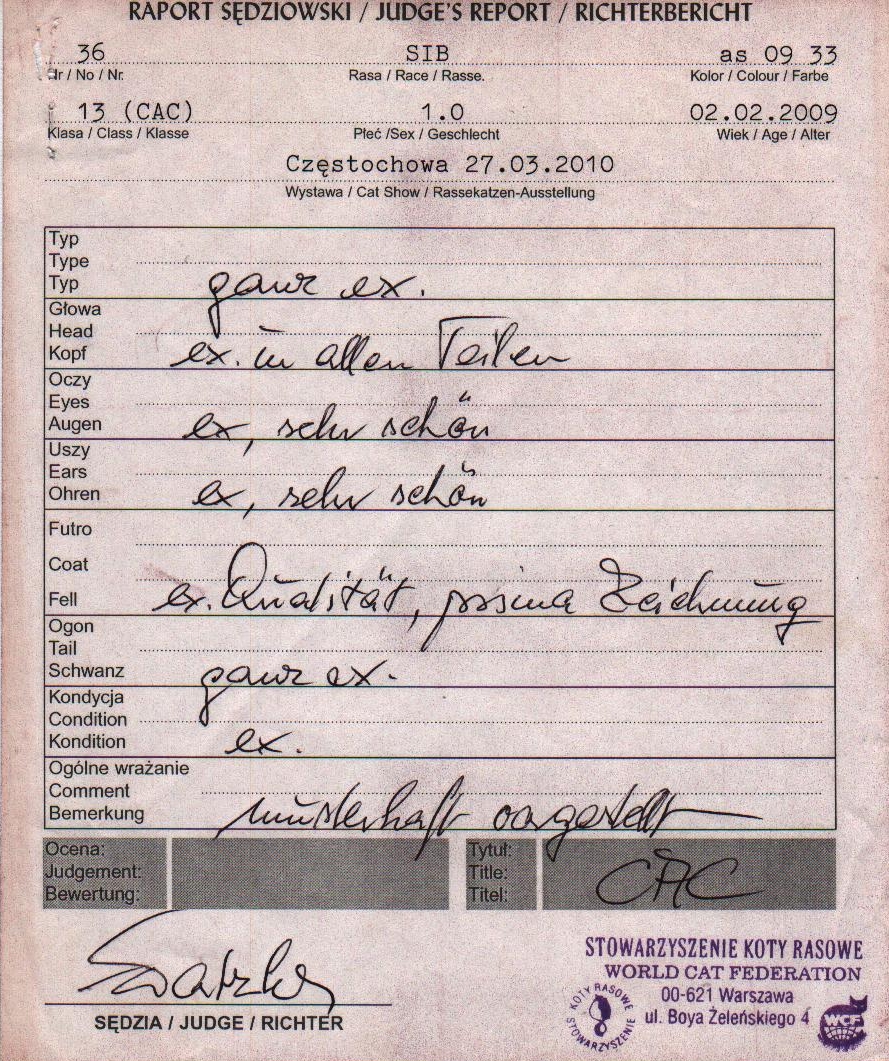 RAPORT SĘDZIOWSKI / JUDGE'S REPORT / RICHTERBERICHT
36 SIB as 09 33
Nr / No / Nr. Rasa / Race / Rasse. Kolor / Colour / Farbe
13 (CAC) 1.0 02.02.2009
Klasa / Class / Klasse Płeć /Sex / Geschlecht Wiek / Age / Alter
Częstochowa 27.03.2010
Wystawa / Cat Show / Rassekatzen-Ausstellung
Typ
Type
Typ ganz ex.
Głowa
Head
Kopf ex. in allen Teilen
Oczy
Eyes
Augen ex, sehr schön
Uszy
Ears
Ohren ex, sehr schön
Futro
Coat
Fell ex. Qualität, prima Zeichnung
Ogon
Tail
Schwanz ganz ex.
Kondycja
Condition
Kondition ex.
Ogólne wrażanie
Comment
Bemerkung musterhaft vorgestellt
Ocena: Tytuł:
Judgement: Title:
Bewertung: Titel: CAC
SĘDZIA / JUDGE / RICHTER
STOWARZYSZENIE KOTY RASOWE
WORLD CAT FEDERATION
00-621 Warszawa
ul. Boya Żeleńskiego 4
KOTY RASOWE
STOWARZYSZENIE
WCF